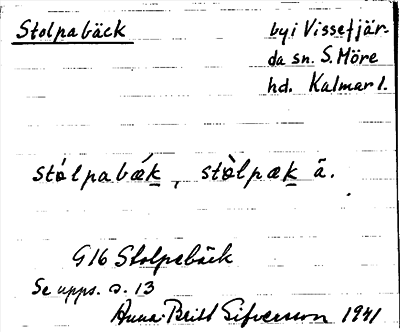 Stolpabäck
by i Vissefjär-
da sn. S. Möre
hd. Kalmar l.
stólpabǽk, stòlpæk ä.
G16 Stolpebäck
Se upps. s. 13
Anna-Britt Sifversson 1941